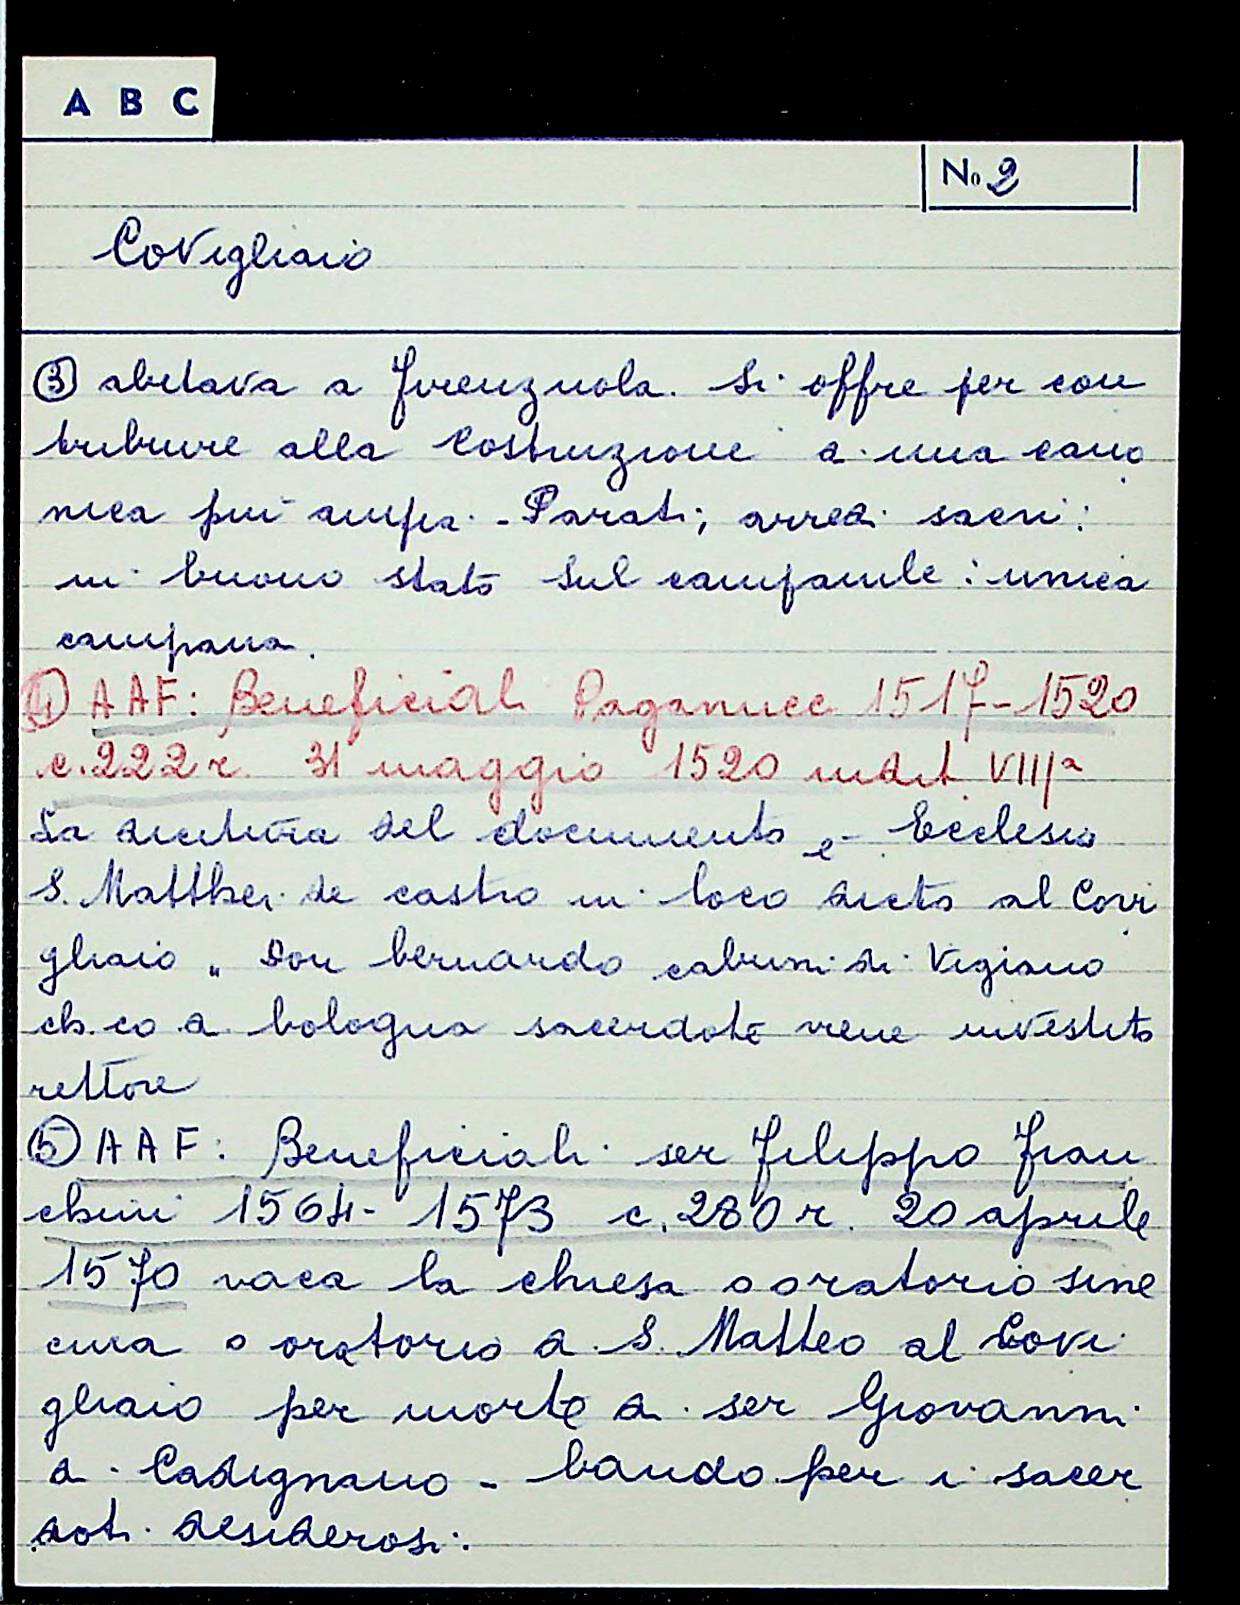 A B C
No 2
Covigliaio
③ abitava a Firenzuola. Si offre per con
tribuire alla costruzione di una cano
nica più ampia. - Parati; arredi sacri:
in buono stato sul campanile: unica
campana.
④ AAF: Beneficiali Paganucci 1517-1520
c.222r. 31 maggio 1520 indit VIIIa
La dicitura del documento è Ecclesia
S. Matthei de castro in loco dicto al Covi
gliaio " Don bernardo di Vigiano
ch.co di bologna sacerdote viene investito
rettore
⑤ AAF: Beneficiali ser Filippo Fran
chini 1564-1573 c.280r. 20 aprile
1570 vaca la chiesa o oratorio sine
cura o oratorio di S. Matteo al Covi
gliaio per morte di ser Giovanni
di Cadignano - bando per i sacer
doti desiderosi.